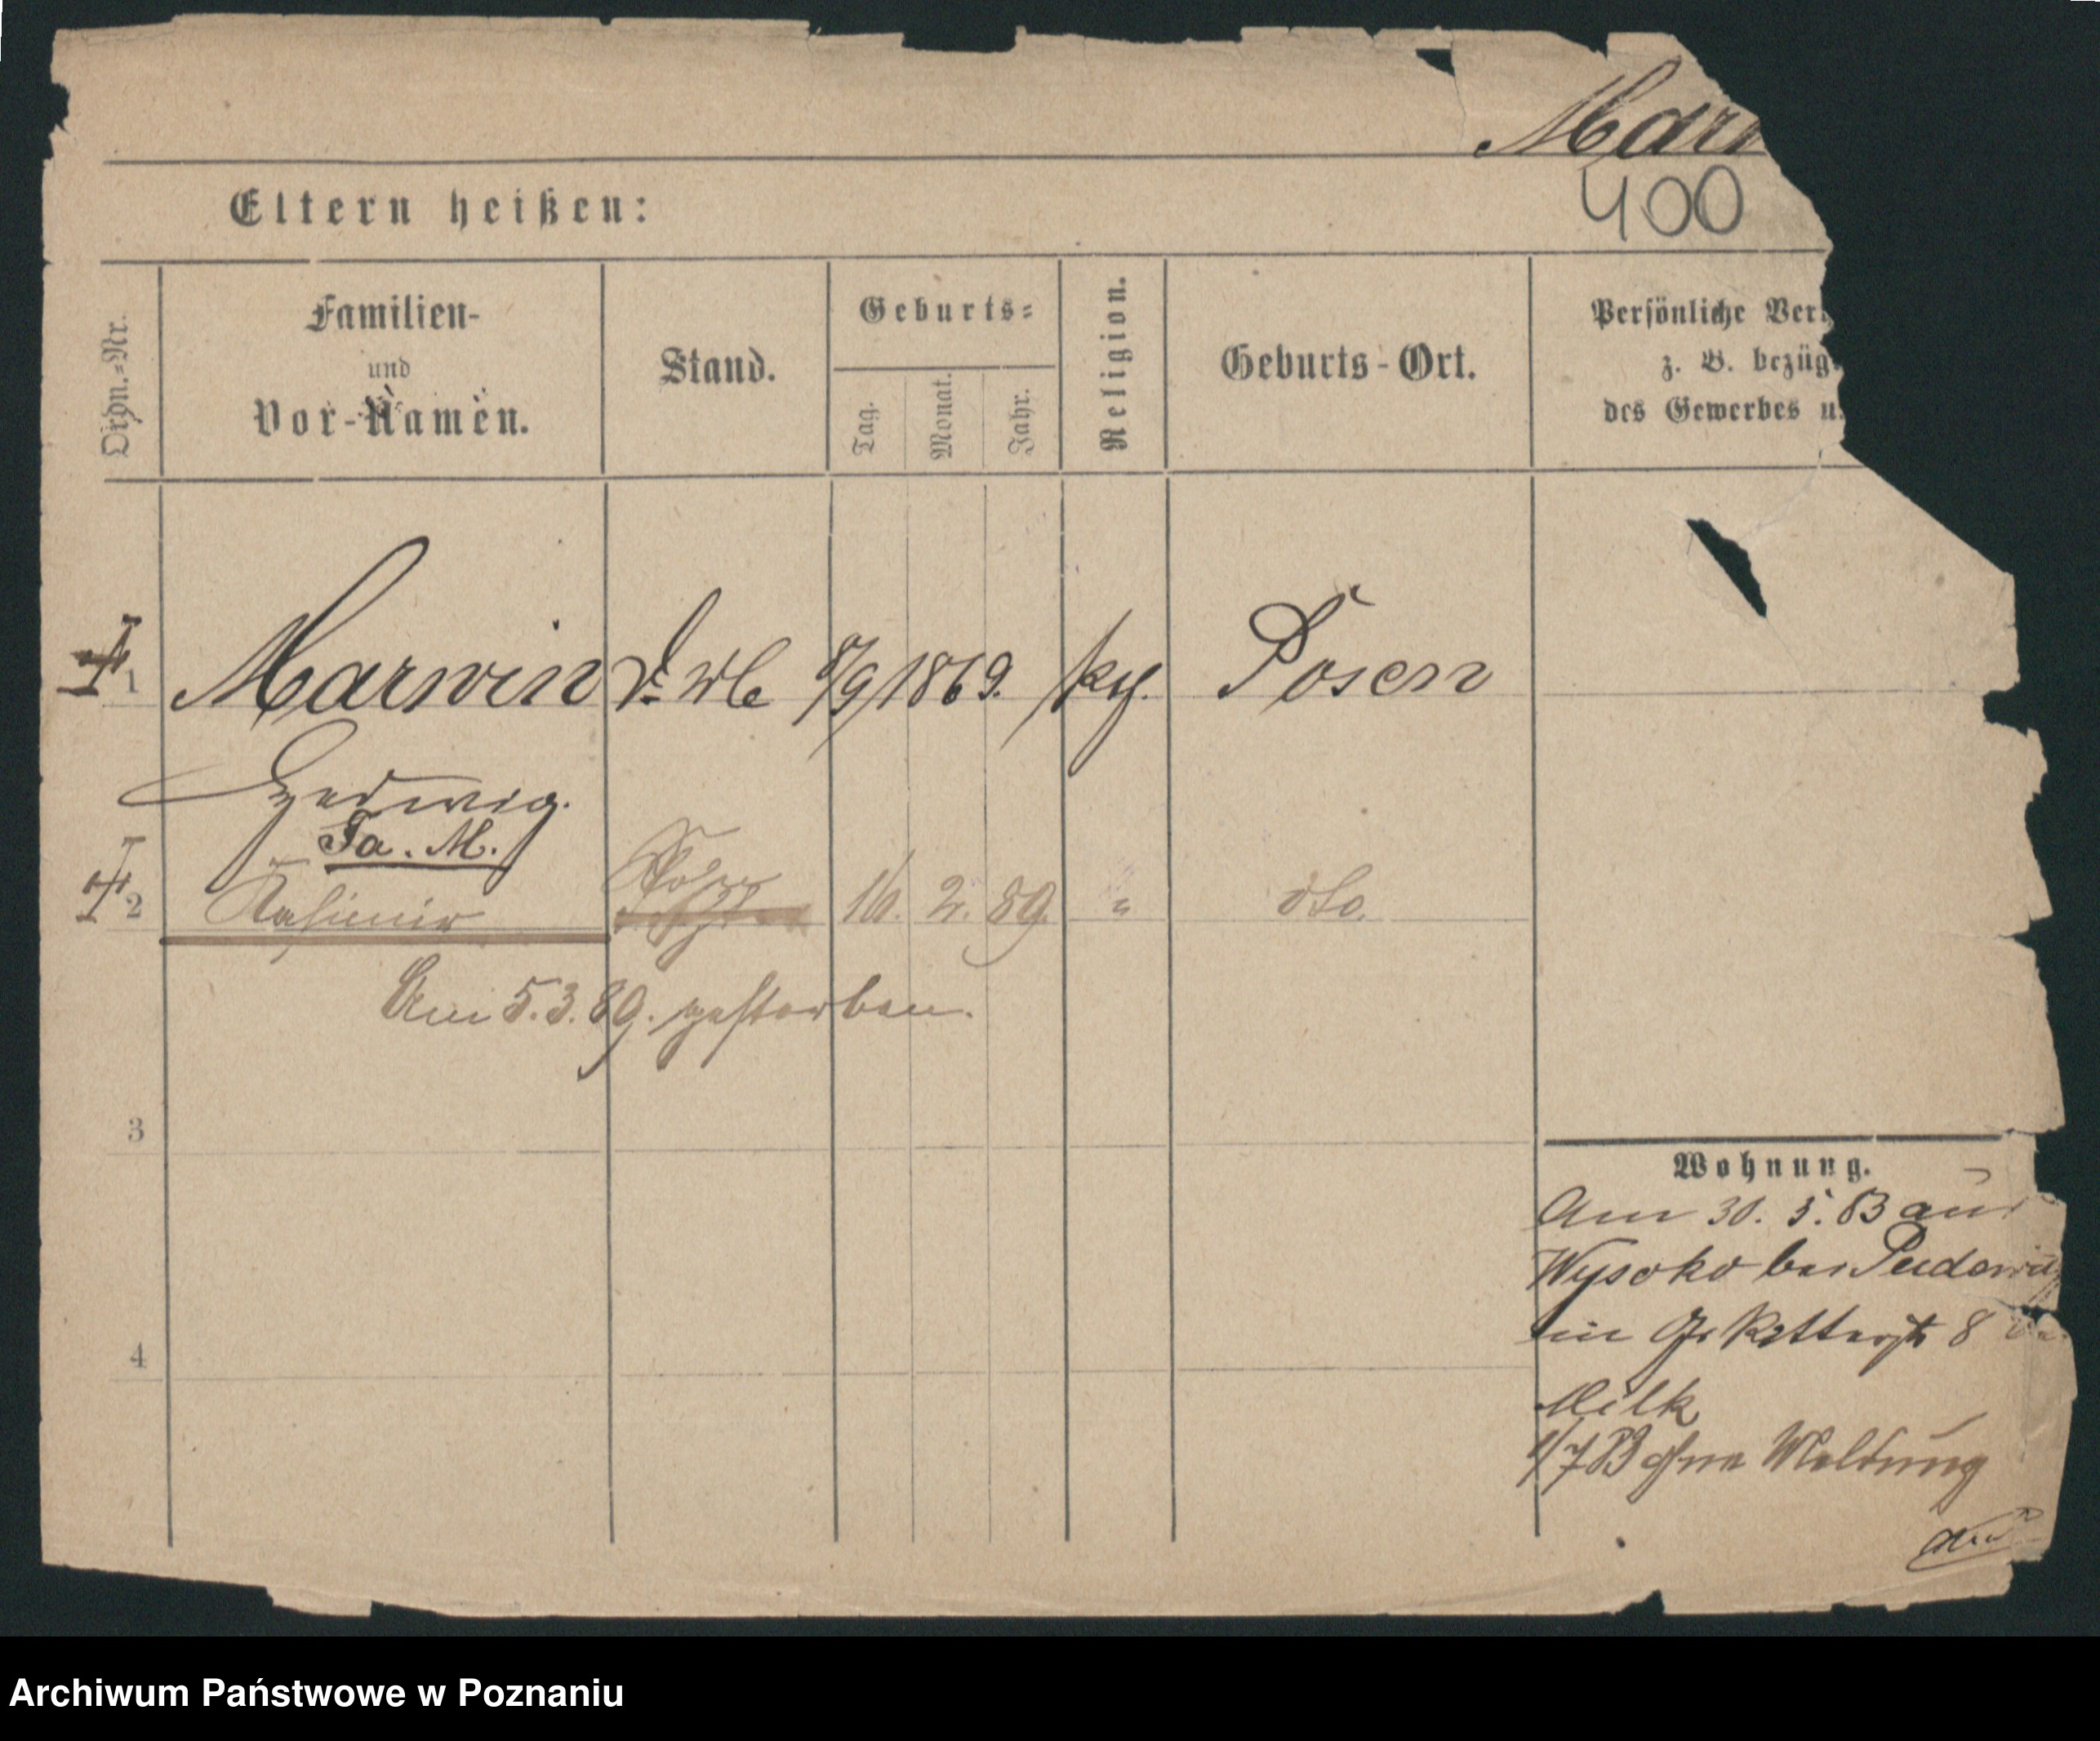 Marw
400
Eltern heißen:
Ordn.=Nr.
Familien-
und
Vor-Namen.
Stand.
Geburts=
Tag.
Monat.
Jahr.
Religion.
Geburts-Ort.
Persönliche Ver
z. B. bezüg
des Gewerbes u.
1 Marwin 8/9 1869. kg. Posen
Hedwig.
Fa. M.
2 Kasimir Sohn 16. 2. 89. " dto.
Am 5.3.89. gestorben.
3
4
Wohnung.
Am 30. 5. 83 aus
Wysoko bei Pudewitz
in Gr Ritterstr 8
Milk
1/7 83 ohne Meldung
Archiwum Państwowe w Poznaniu